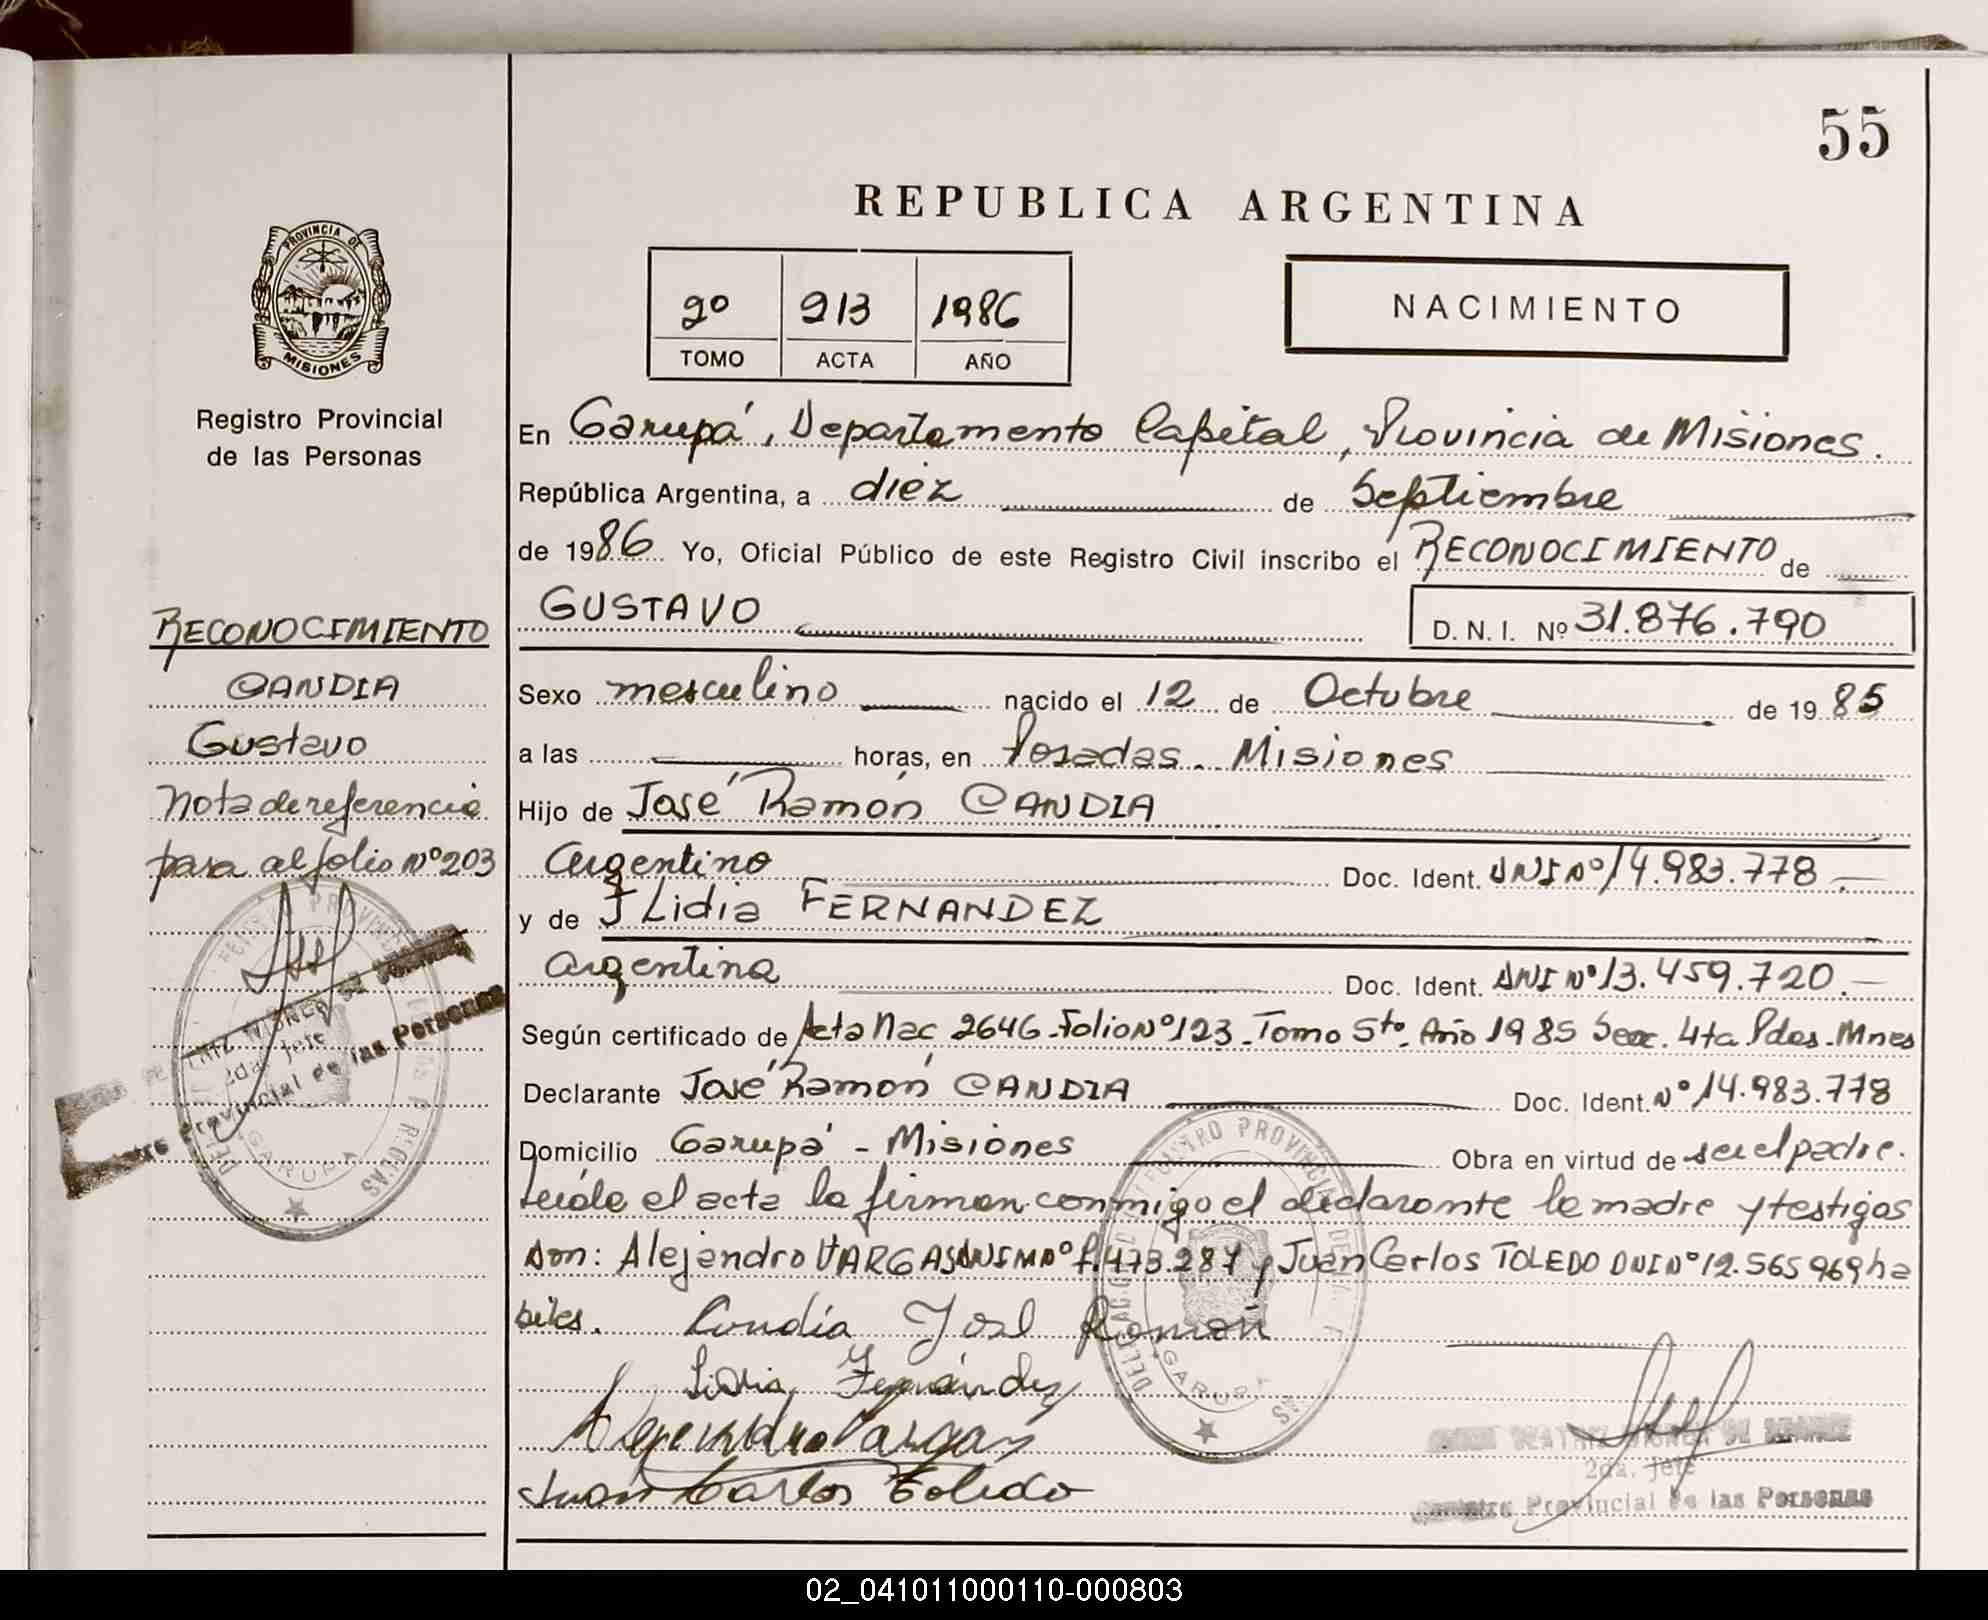 55
REPUBLICA ARGENTINA
PROVINCIA DE
MISIONES
Registro Provincial
de las Personas
2º 213 1986
TOMO ACTA AÑO
NACIMIENTO
En Garupá, Departamento Capital, Provincia de Misiones.
República Argentina, a diez de Septiembre
de 1986 Yo, Oficial Público de este Registro Civil inscribo el RECONOCIMIENTO de
GUSTAVO D.N.I. Nº 31.876.790
Sexo masculino nacido el 12 de Octubre de 1985
a las horas, en Posadas. Misiones
Hijo de José Ramón CANDIA
argentino Doc. Ident. DNI Nº 14.983.778.-
y de Lidia FERNANDEZ
argentina Doc. Ident. DNI Nº 13.459.720.-
Según certificado de Acta Nac 2646-Folio Nº 123-Tomo 5to-Año 1985 Secc. 4ta Pdas-Mnes
Declarante José Ramón CANDIA Doc. Ident. Nº 14.983.778
Domicilio Garupá - Misiones Obra en virtud de ser el padre.
Leída el acta la firman conmigo el declarante la madre y testigos
Don: Alejandro VARGAS DNI M Nº 7.473.287 y Juan Carlos TOLEDO DNI Nº 12.565969 ha
biles. Candia José Ramón
Lidia Fernández
Alejandro Vargas
Juan Carlos Toledo
2da. Jefe
Registro Provincial de las Personas
RECONOCIMIENTO
CANDIA
Gustavo
Nota de referencia
para al folio Nº 203
2da. Jefe
Registro Provincial de las Personas
GARUPA
GARUPA
02_041011000110-000803